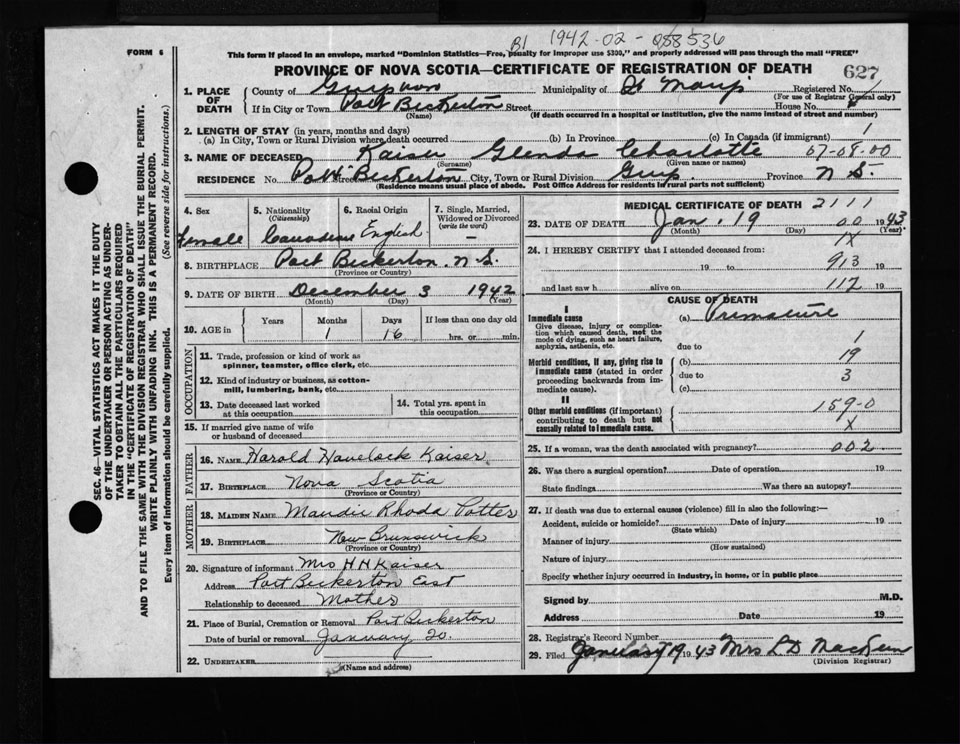 B1 1942-02-088536
FORM 6
This form if placed in an envelope, marked "Dominion Statistics—Free, penalty for improper use $300," and properly addressed will pass through the mail "FREE"
PROVINCE OF NOVA SCOTIA—CERTIFICATE OF REGISTRATION OF DEATH 627
1. PLACE OF DEATH
County of Guysboro Municipality of St Marys Registered No.
(For use of Registrar General only)
If in City or Town Port Bickerton Street House No.
(Name) (If death occurred in a hospital or institution, give the name instead of street and number)
2. LENGTH OF STAY (in years, months and days)
(a) In City, Town or Rural Division where death occurred (b) In Province (c) In Canada (if immigrant) 1
3. NAME OF DECEASED Kaiser Glenda Charlotte 07-08-00
(Surname) (Given name or names)
RESIDENCE No. Street Port Bickerton City, Town or Rural Division Guys. Province N S.
(Residence means usual place of abode. Post Office Address for residents in rural parts not sufficient)
4. Sex
Female
5. Nationality
(Citizenship)
Canadian
6. Racial Origin
English
7. Single, Married, Widowed or Divorced
(write the word)
—
8. BIRTHPLACE Port Bickerton. N S.
(Province or Country)
9. DATE OF BIRTH December 3 1942
(Month) (Day) (Year)
10. AGE in Years Months Days If less than one day old
1 16 hrs. or min.
OCCUPATION
11. Trade, profession or kind of work as
spinner, teamster, office clerk, etc.
12. Kind of industry or business, as cotton-
mill, lumbering, bank, etc.
13. Date deceased last worked
at this occupation
14. Total yrs. spent in
this occupation
15. If married give name of wife
or husband of deceased
FATHER
16. NAME Harold Havelock Kaiser
17. BIRTHPLACE Nova Scotia
(Province or Country)
MOTHER
18. MAIDEN NAME Maudie Rhoda Potter
19. BIRTHPLACE New Brunswick
(Province or Country)
20. Signature of informant Mrs H H Kaiser
Address Port Bickerton East
Relationship to deceased Mother
21. Place of Burial, Cremation or Removal Port Bickerton
Date of burial or removal January 20.
22. UNDERTAKER
(Name and address)
MEDICAL CERTIFICATE OF DEATH 2111
23. DATE OF DEATH Jan. 19 00 1943
(Month) (Day) (Year)
1X
24. I HEREBY CERTIFY that I attended deceased from:
19 to 913 19
and last saw h alive on 112 19
CAUSE OF DEATH
I
Immediate cause
Give disease, injury or complication which caused death, not the mode of dying, such as heart failure, asphyxia, asthenia, etc.
(a) Premature
due to 1
Morbid conditions, if any, giving rise to immediate cause (stated in order proceeding backwards from immediate cause).
(b) 19
due to 3
(c)
II
Other morbid conditions (if important) contributing to death but not causally related to immediate cause.
159-0
X
25. If a woman, was the death associated with pregnancy? 002
26. Was there a surgical operation? Date of operation 19
State findings Was there an autopsy?
27. If death was due to external causes (violence) fill in also the following:—
Accident, suicide or homicide? Date of injury 19
(State which)
Manner of injury
(How sustained)
Nature of injury
Specify whether injury occurred in industry, in home, or in public place
Signed by M.D.
Address Date 19
28. Registrar's Record Number
29. Filed January 19 1943 Mrs L D MacKeen
(Division Registrar)
SEC. 46—VITAL STATISTICS ACT MAKES IT THE DUTY
OF THE UNDERTAKER OR PERSON ACTING AS UNDER-
TAKER TO OBTAIN ALL THE PARTICULARS REQUIRED
IN THE "CERTIFICATE OF REGISTRATION OF DEATH"
AND TO FILE THE SAME WITH THE DIVISION REGISTRAR WHO SHALL ISSUE THE BURIAL PERMIT.
WRITE PLAINLY WITH UNFADING INK. THIS IS A PERMANENT RECORD.
Every item of information should be carefully supplied. (See reverse side for instructions.)